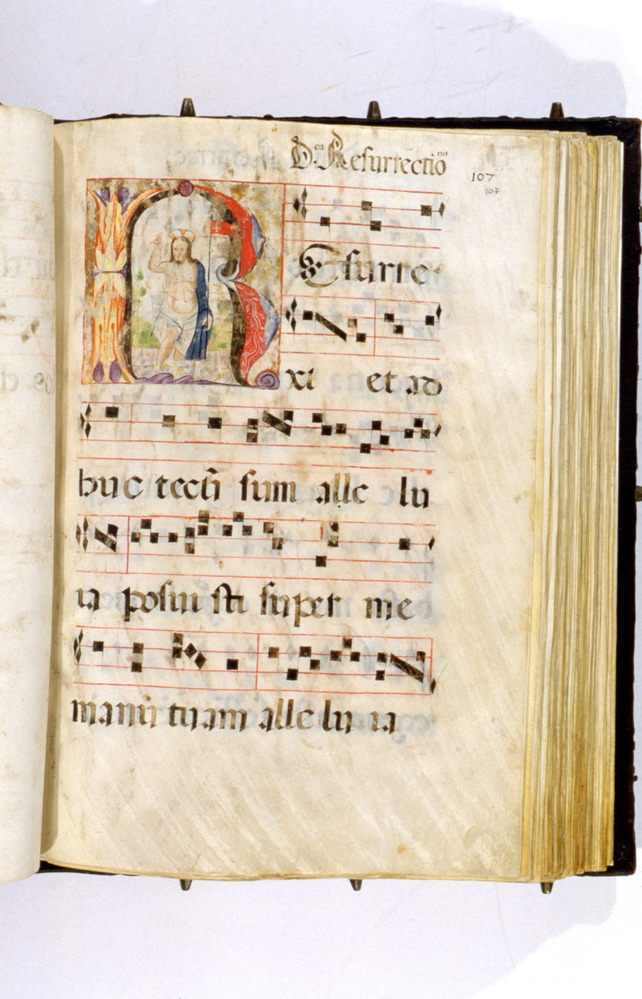 D.ca Resurrectio nis
107
107
REsurre
xi et ad
huc tecū sum alle lu
ia posui sti super me
manū tuam alle lu ia